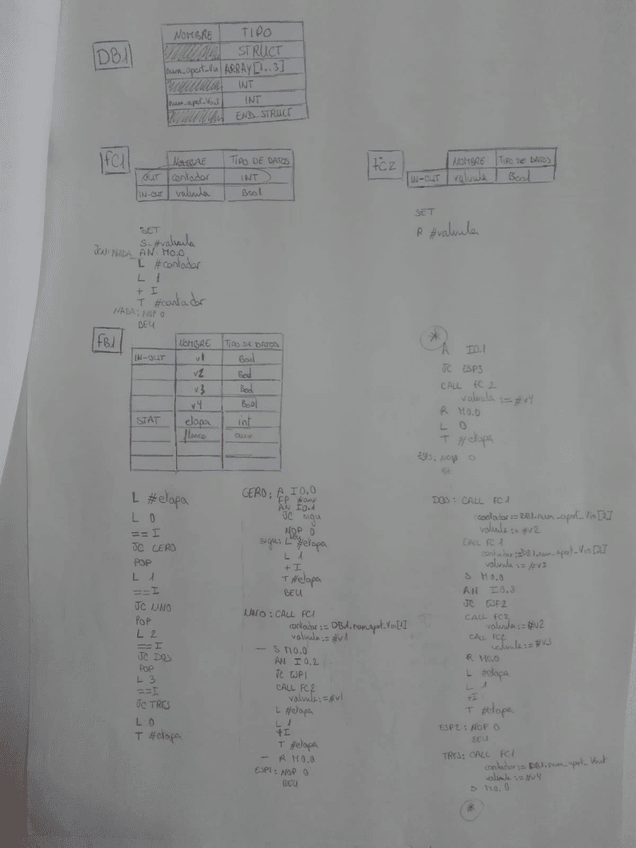 DB1
NOMBRE TIPO
STRUCT
num_apert_Vin ARRAY[1..3]
INT
num_apert_Vout INT
END_STRUCT
FC1
NOMBRE TIPO DE DATOS
OUT contador INT
IN-OUT valvula Bool
FC2
NOMBRE TIPO DE DATOS
IN-OUT valvula Bool
SET
S #valvula
AN M0.0
L #contador
L 1
+ I
T #contador
NADA: NOP 0
BEU
SET
R #valvula
FB1
NOMBRE TIPO DE DATOS
IN-OUT v1 Bool
v2 Bool
v3 Bool
v4 Bool
STAT etapa int
flanco
L #etapa
L 0
==I
JC CERO
POP
L 1
==I
JC UNO
POP
L 2
==I
JC DOS
POP
L 3
==I
JC TRES
L 0
T #etapa
CERO: A I0.0
FP
AN I0.1
JC sigu
NOP 0
sigu: L #etapa
L 1
+ I
T #etapa
BEU
UNO: CALL FC1
contador:= DB1.num_apert_Vin[1]
valvula:= #v1
S M0.0
AN I0.2
JC ESP1
CALL FC2
valvula:= #v1
L #etapa
L 1
+I
T #etapa
R M0.0
ESP1: NOP 0
BEU
*
A I0.1
JC ESP3
CALL FC2
valvula:= #v4
R M0.0
L 0
T #etapa
ESP3: NOP 0
DOS: CALL FC1
contador:= DB1.num_apert_Vin[2]
valvula:= #v2
CALL FC1
contador:= DB1.num_apert_Vin[3]
valvula:= #v3
S M0.0
AN I0.3
JC ESP2
CALL FC2
valvula:= #v2
CALL FC2
valvula:= #v3
R M0.0
L #etapa
L 1
+I
T #etapa
ESP2: NOP 0
BEU
TRES: CALL FC1
contador:= DB1.num_apert_Vout
valvula:= #v4
S M0.0
*